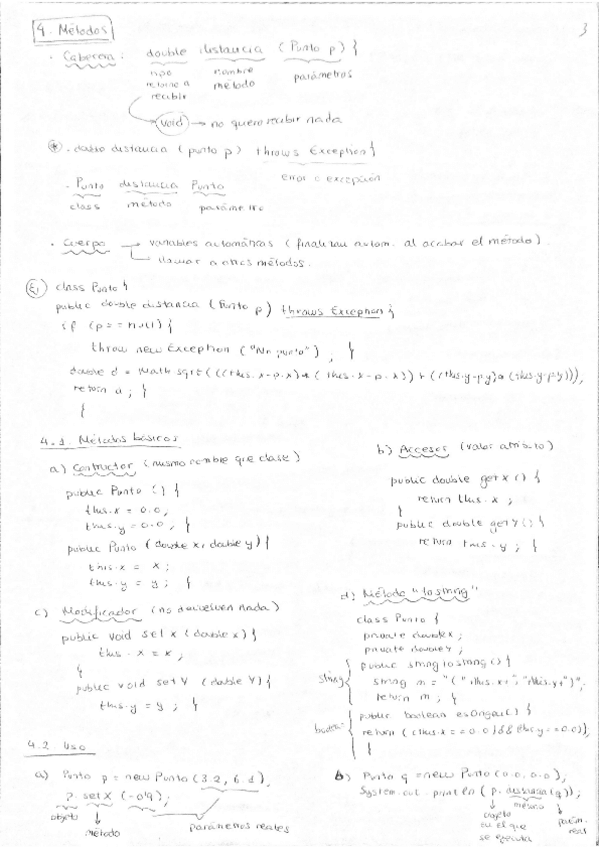 4. Métodos
3
· Cabecera: double distancia (Punto p) {
tipo retorno a recibir
nombre método
parámetros
void → no quiero recibir nada
* . distancia (punto p) throws Exception {
error o excepción
. Punto distancia Punto
class método parámetro
· Cuerpo → variables automáticas (finalizan autom. al acabar el método).
llamar a otros métodos.
Ej class Punto {
public double distancia (Punto p) throws Exception {
if (p == null) {
throw new Exception ("No punto") ; }
double d = Math sqrt (((this.x-p.x)*(this.x-p.x)) + ((this.y-p.y)*(this.y-p.y)));
return d ; }
}
4.1. Métodos básicos
a) Contructor (mismo nombre que clase)
public Punto () {
this.x = 0.0,
this.y = 0.0 , }
public Punto (double x, double y) {
this.x = x ;
this.y = y ; }
b) Acceso (valor atributo)
public double getX () {
return this.x ;
}
public double getY () {
return this.y ; }
c) Modificador (no devuelven nada)
public void setX (double x) {
this.x = x ;
}
public void setY (double Y) {
this.y = y ; }
d) Método "toString"
class Punto {
private double x ;
private double y ;
string { public string toString () {
string m = "(" + this.x + ", " + this.y + ")".
return m ; }
public boolean esOrigen () {
return ((this.x == 0.0) && (this.y == 0.0));
}
4.2 Uso
a) Punto p = new Punto (3.2, 6.1),
p.setX (-0'9) ;
objeto
método
parámetros reales
b) Punto q = new Punto (0.0, 0.0);
System.out.println (p.distancia(q));
objeto su el que se ejecuta
método
parám. real